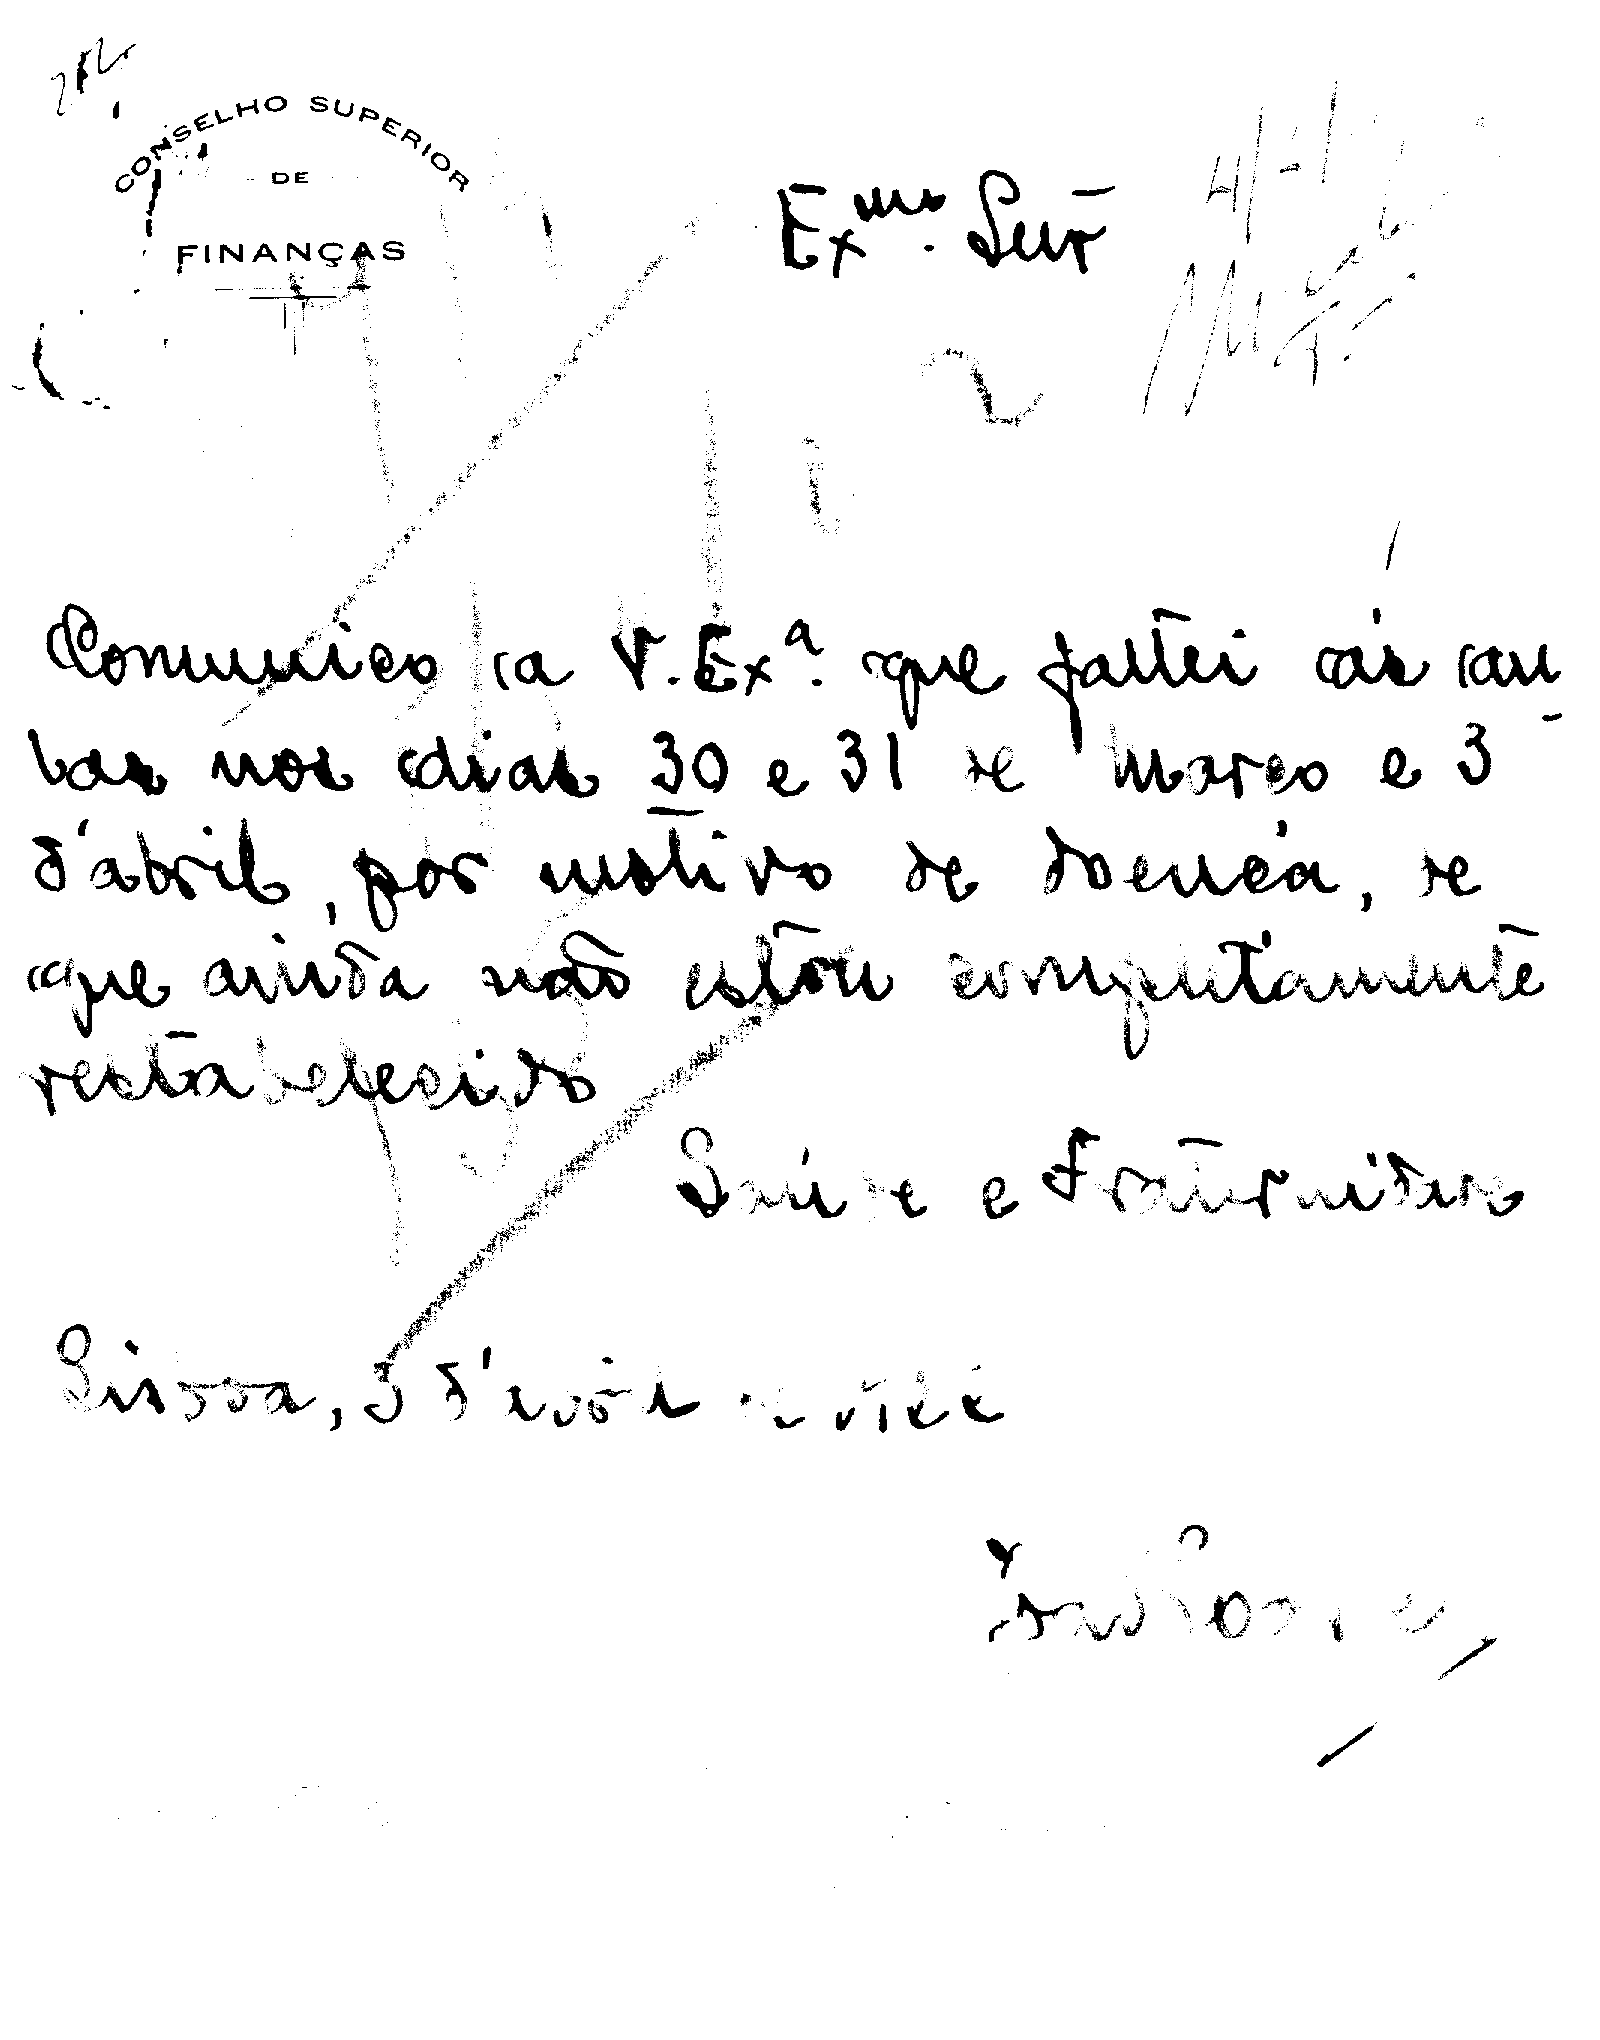 CONSELHO SUPERIOR
DE
FINANÇAS
Exmo. Snr
Communico a V. Exª. que faltei ás au
las nos dias 30 e 31 de março e 3
d'abril, por motivo de doença, de
que ainda não estou completamente
restabelecido
Saúde e Fraternidade
Lisboa, 3 d'abril de